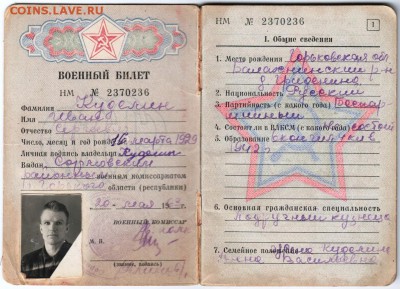 COINS.LAVE.RU
ВОЕННЫЙ БИЛЕТ
НМ № 2370236
Фамилия
Имя Иван
Отчество
Число, месяц и год рожд. 16 марта 1929
Личная подпись владельца
Выдан Сормовским
районным военным комиссариатом
области (республики)
20 мая
ВОЕННЫЙ КОМИССАР
М. П.
(звание, подпись)
НМ № 2370236
1
I. Общие сведения
1. Место рождения Горьковская обл.
Балахнинский р-н
2. Национальность Русский
3. Партийность (с какого года) Беспар
тийный
4. Состоит в ВЛКСМ (с какого года) Не состоит
5. Образование
6. Основная гражданская специальность
Подручный кузнеца
7. Семейное положение Жена
Анна Васильевна